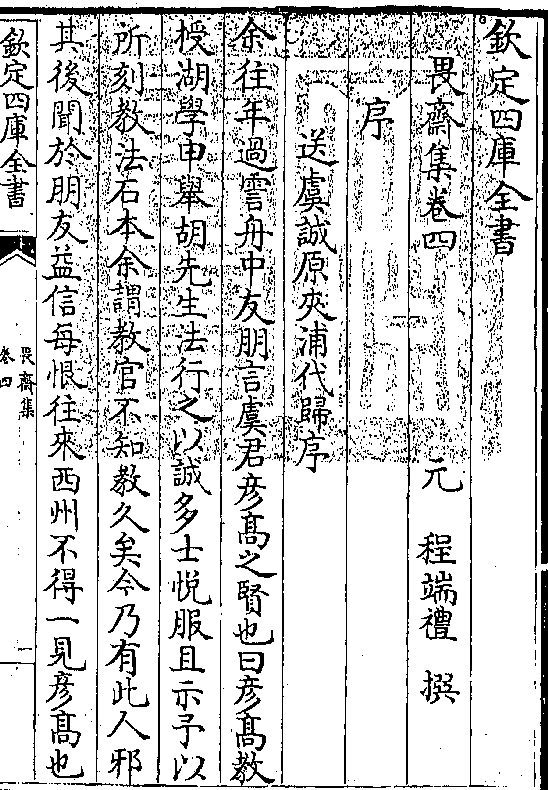 欽定四庫全書
畏齋集卷四
元 程端禮 撰
序
送虞誠原夾浦代歸序
余往年過霅舟中友朋言虞君彦髙之賢也曰彦髙教
授湖學申舉胡先生法行之以誠多士悦服且示予以
所刻教法石本余謂教官不知教久矣今乃有此人邪
其後聞於朋友益信每恨往來西州不得一見彦髙也
欽定四庫全書
畏齋集
卷四
一